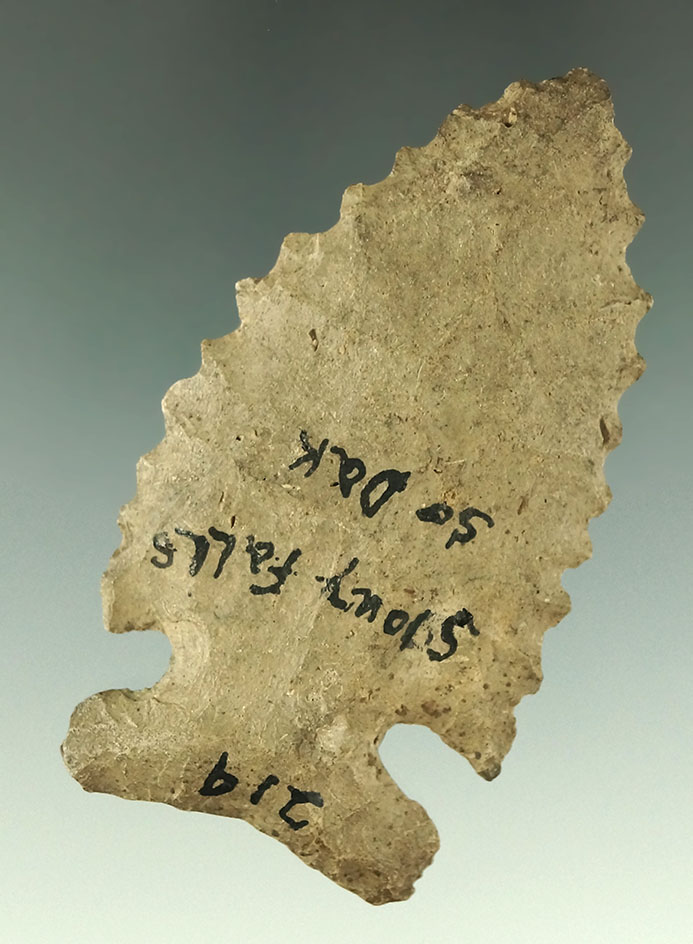 219
Sioux FaLLS
So Dak